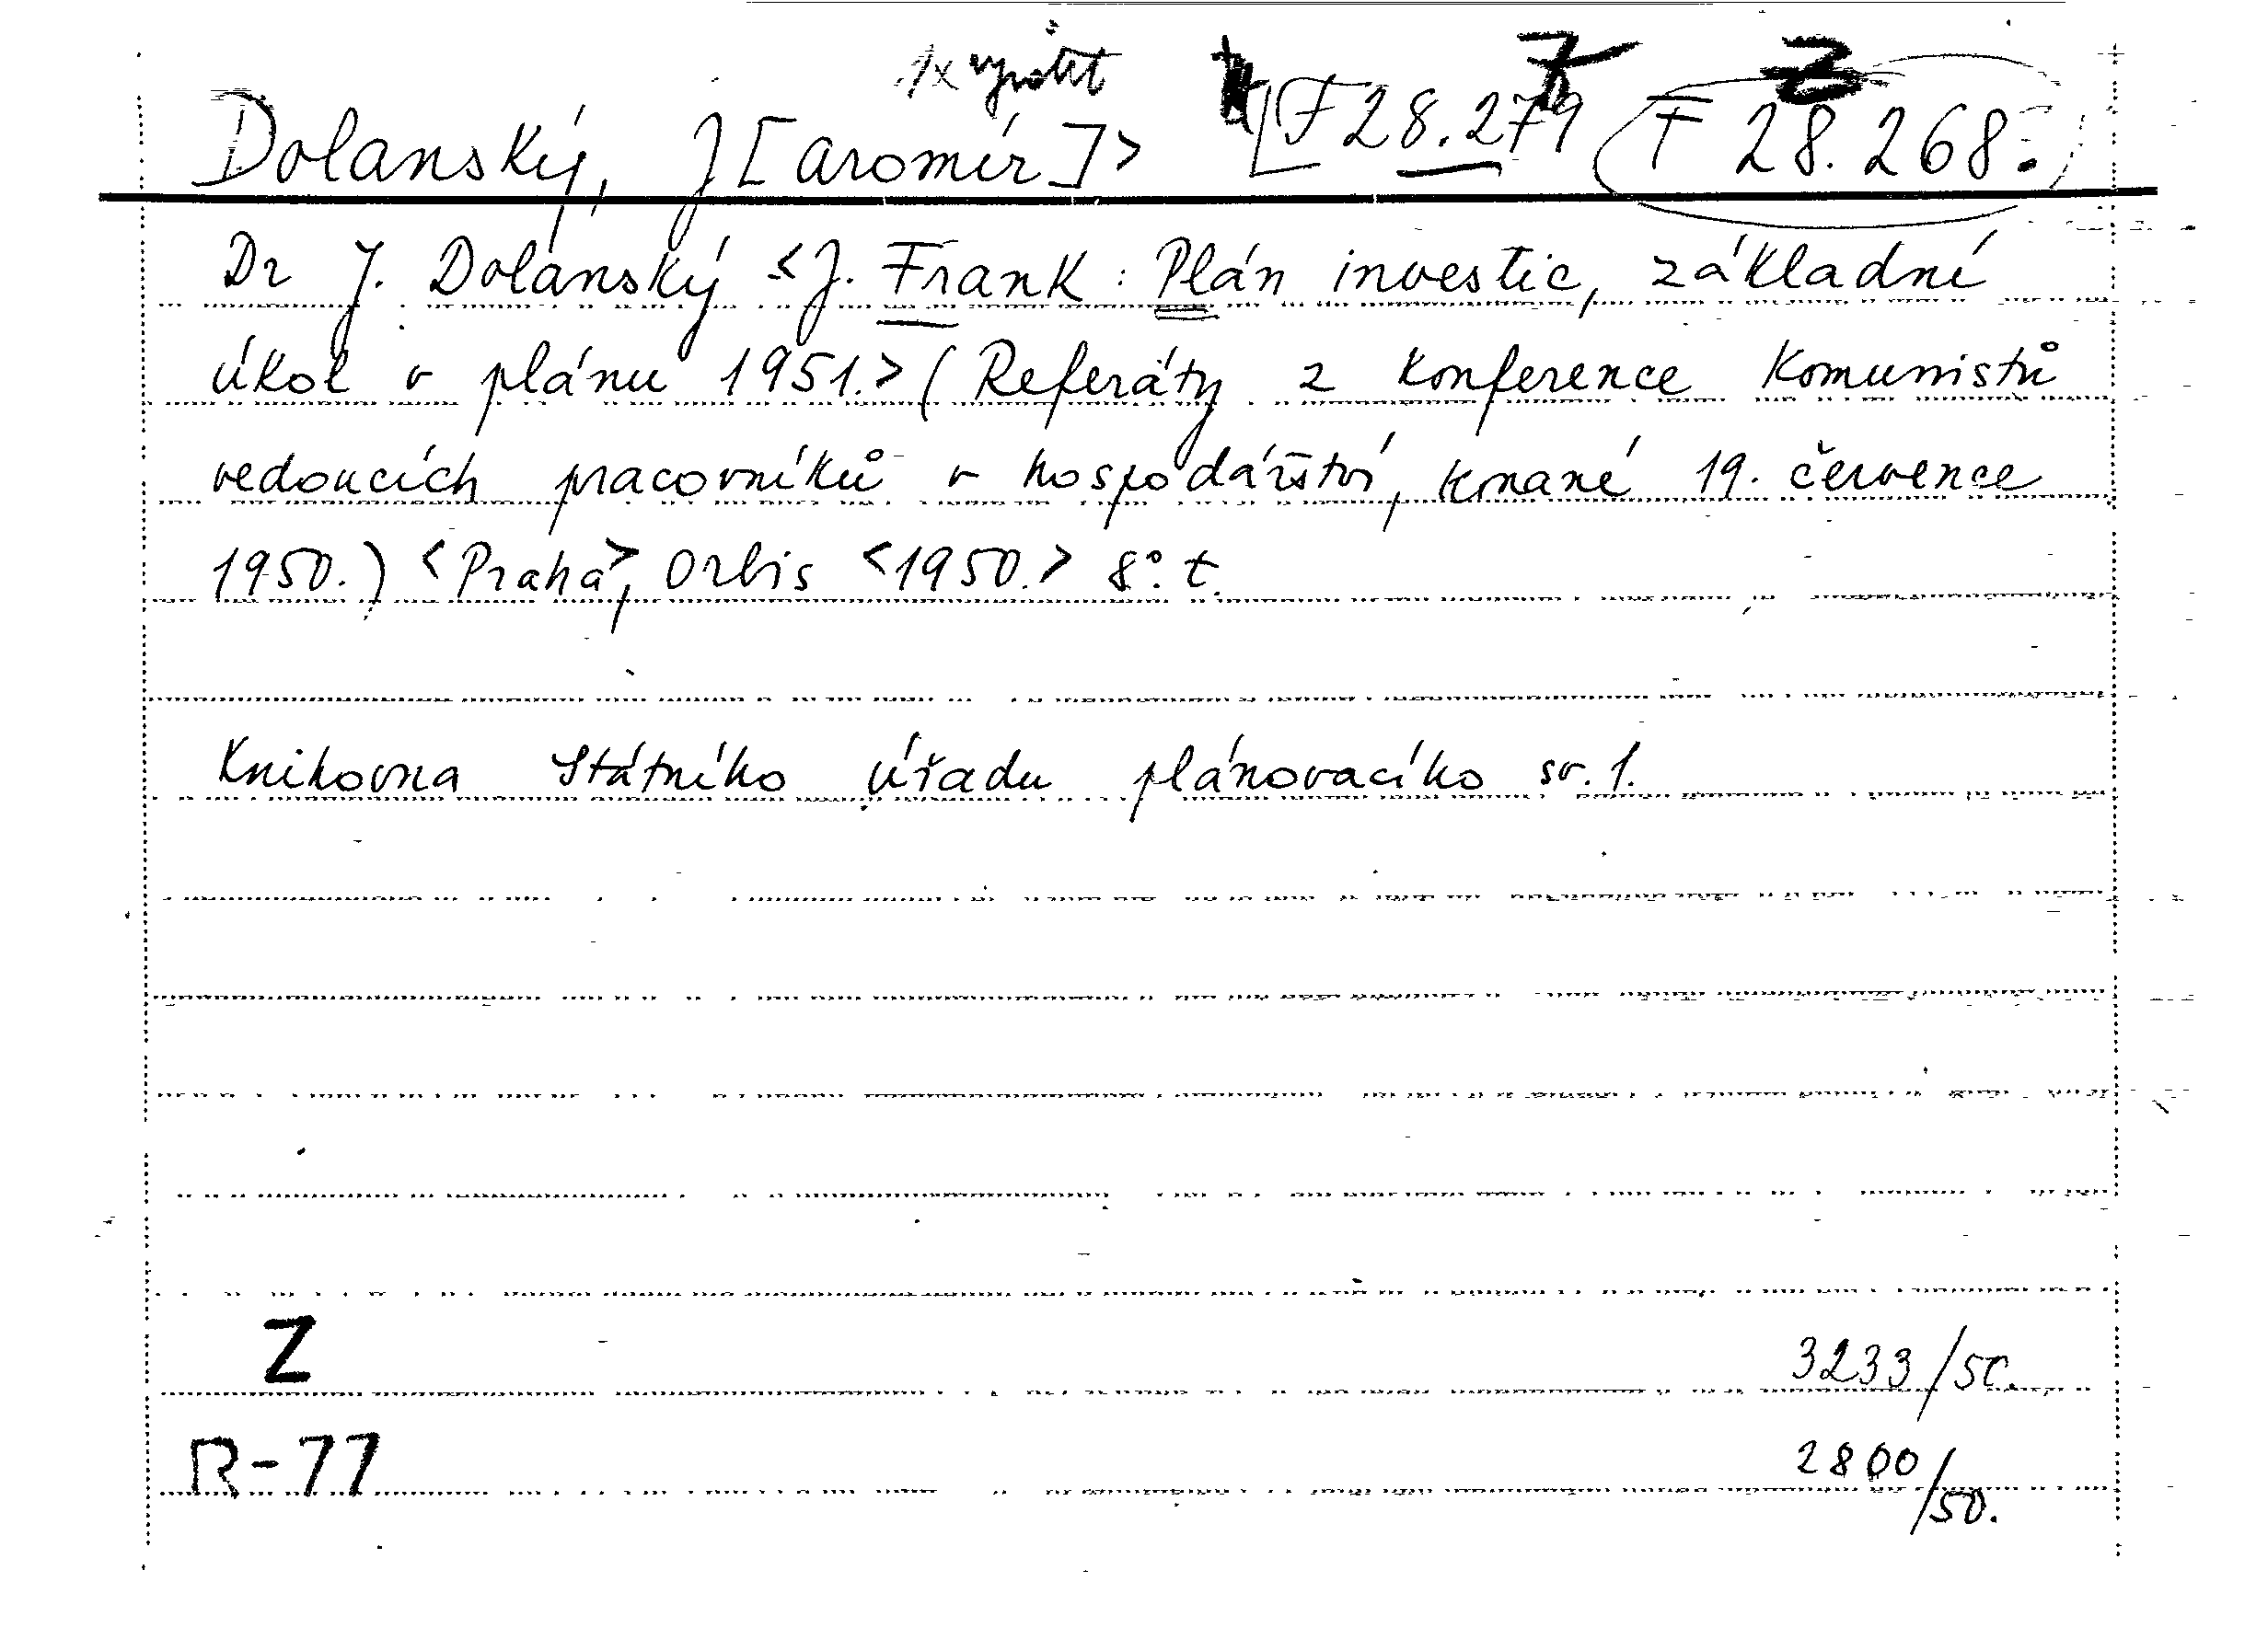 1x
Dolanský, J[aromír]> [F 28.279 (F 28.268.)
Dr J. Dolanský <J. Frank: Plán investic, základní
úkol v plánu 1951.> (Referáty z konference komunistů
vedoucích pracovníků v hospodářství, konané 19. července
1950.) <Praha>, Orbis <1950.> 8°. t.
Knihovna Státního úřadu plánovacího sv. 1.
Z
3233/50.
R-77
2800/50.